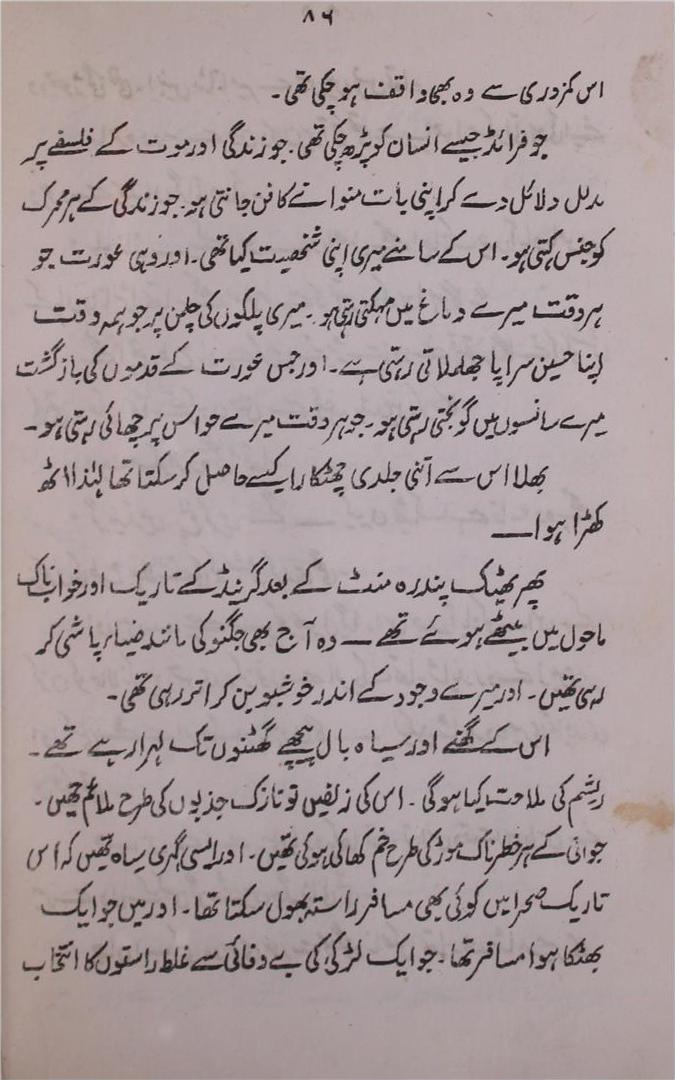 ۸۶
اس کمزوری سے وہ بھی واقف ہو چکی تھی۔
جو فرائڈ جیسے انسان کو پڑھ چکی تھی۔ جو زندگی اور موت کے فلسفے پر
مدلل دلائل دے کر اپنی بات منوانے کا فن جانتی ہو۔ جو زندگی کے ہر محرک
کو جنس کہتی ہو۔ اس کے سامنے میری اپنی شخصیت کیا تھی۔ اور وہی عورت جو
ہر وقت میرے دماغ میں مہکتی رہتی ہو۔ میری پلکوں کی چلمن پر جو ہمہ وقت
اپنا حسین سراپا جھلملاتی رہتی ہے۔ اور جس عورت کے قدموں کی بازگشت
میرے سانسوں میں گونجتی رہتی ہو۔ جو ہر وقت میرے حواس پر چھائی رہتی ہو۔
بھلا اس سے اتنی جلدی چھٹکارا کیسے حاصل کر سکتا تھا لہٰذا اٹھ
کھڑا ہوا ــــ
پھر ٹھیک پندرہ منٹ کے بعد گرینڈ کے تاریک اور خواب ناک
ماحول میں بیٹھے ہوئے تھے ــ وہ آج بھی جگنو کی مانند ضیاء پاشی کر
رہی تھیں۔ اور میرے وجود کے اندر خوشبو بن کر اتر رہی تھی۔
اس کے گھنے اور سیاہ بال پیچھے گھٹنوں تک لہرا رہے تھے۔
ریشم کی ملاحت کیا ہوگی۔ اس کی زلفیں تو نازک جذبوں کی طرح ملائم تھیں۔
جوانی کے ہر خطرناک موڑ کی طرح خم کھائی ہوئی تھیں۔ اور ایسی گہری سیاہ تھیں کہ اس
تاریک صحرا میں کوئی بھی مسافر راستہ بھول سکتا تھا۔ اور میں جو ایک
بھٹکا ہوا مسافر تھا۔ جو ایک لڑکی کی بے وفائی سے غلط راستوں کا انتخاب